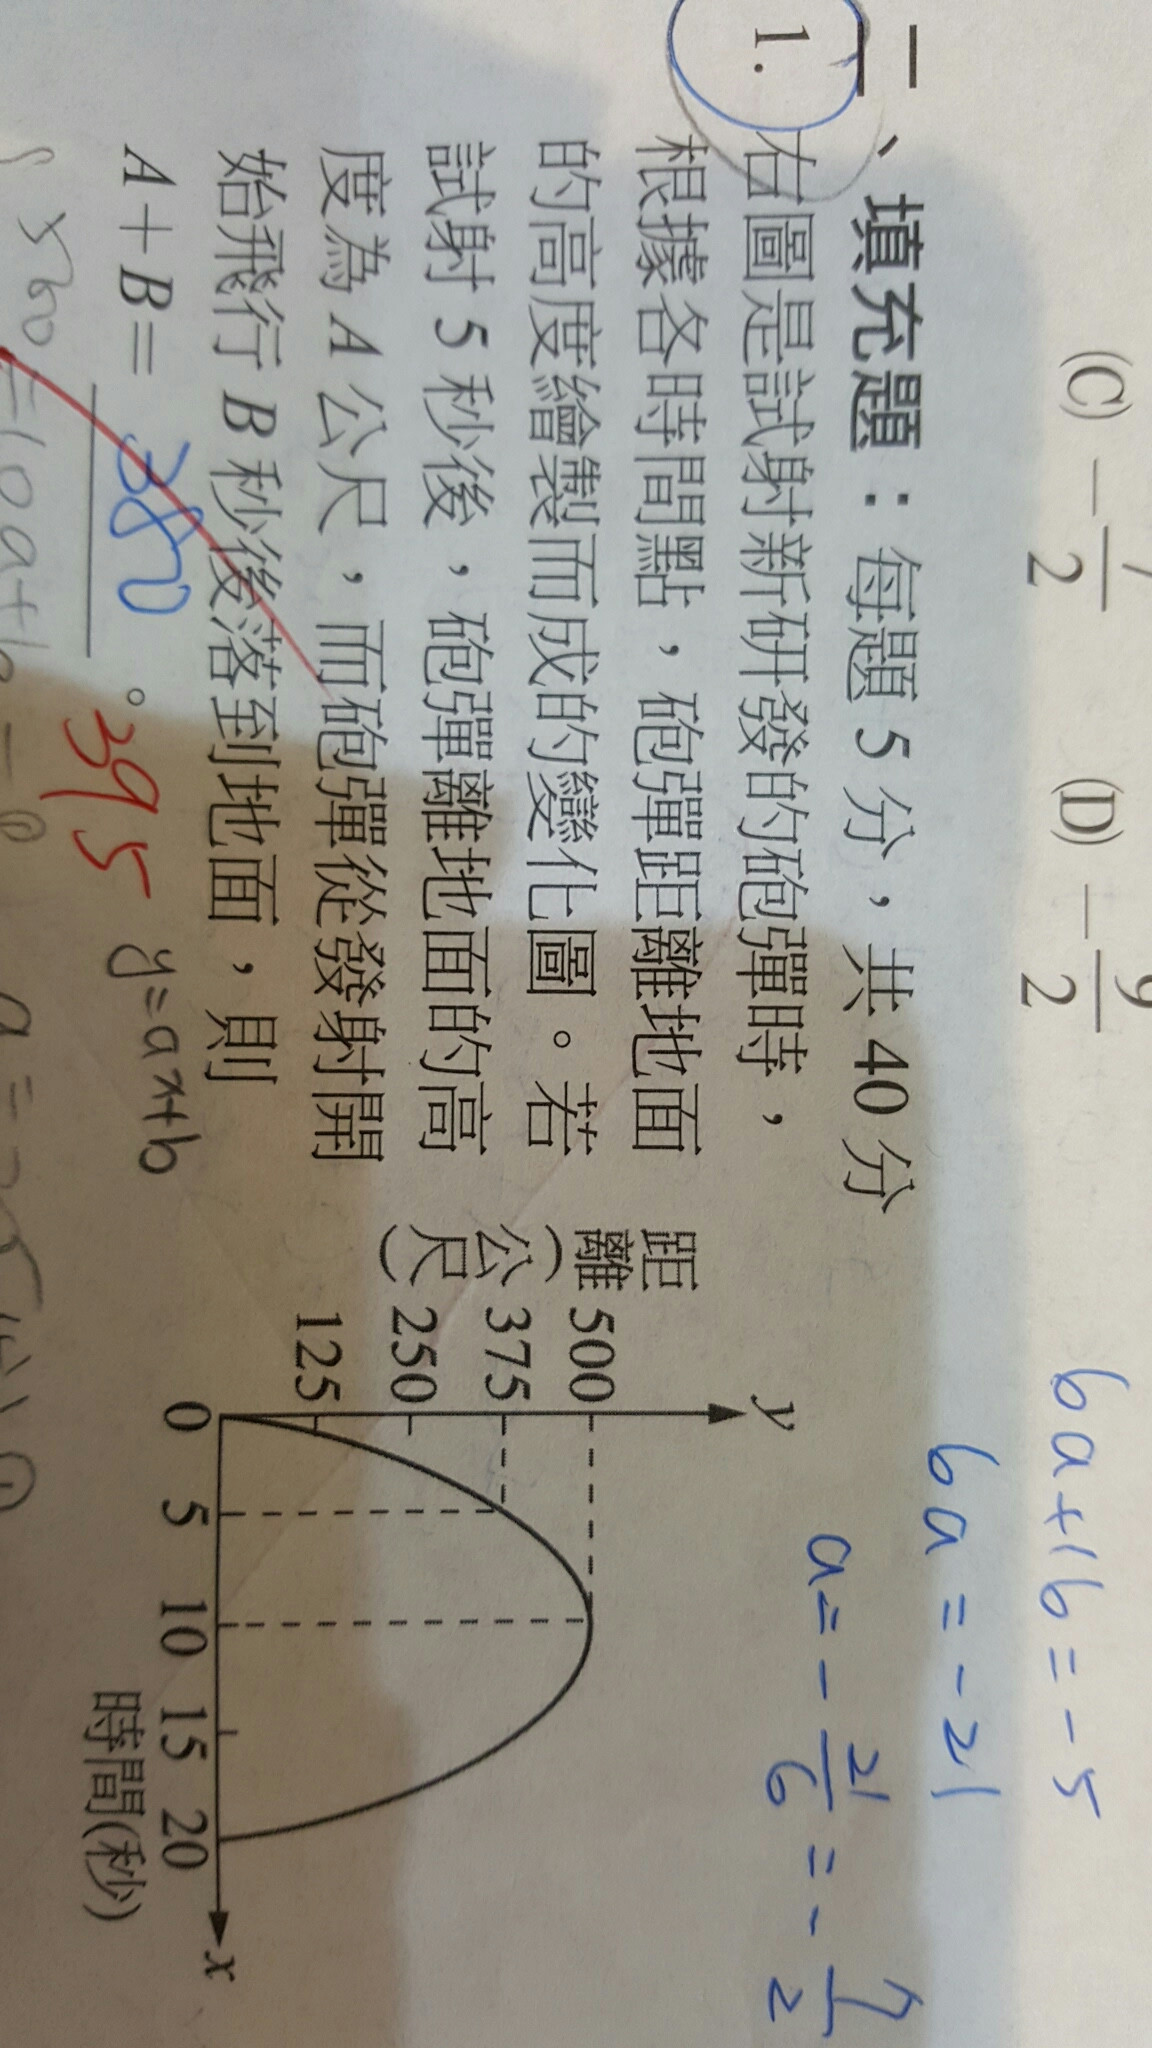 (C) − 7/2 (D) − 9/2
6a+16=-5
6a=-21
a=-21/6=-7/2
一、填充題：每題 5 分，共 40 分
1. 右圖是試射新研發的砲彈時，
根據各時間點，砲彈距離地面
的高度繪製而成的變化圖。若
試射 5 秒後，砲彈離地面的高
度為 A 公尺，而砲彈從發射開
始飛行 B 秒後落到地面，則
A + B = 380 。
395
y=ax+b
500=10a+b
y
距離(公尺)
500
375
250
125
0 5 10 15 20 x
時間(秒)